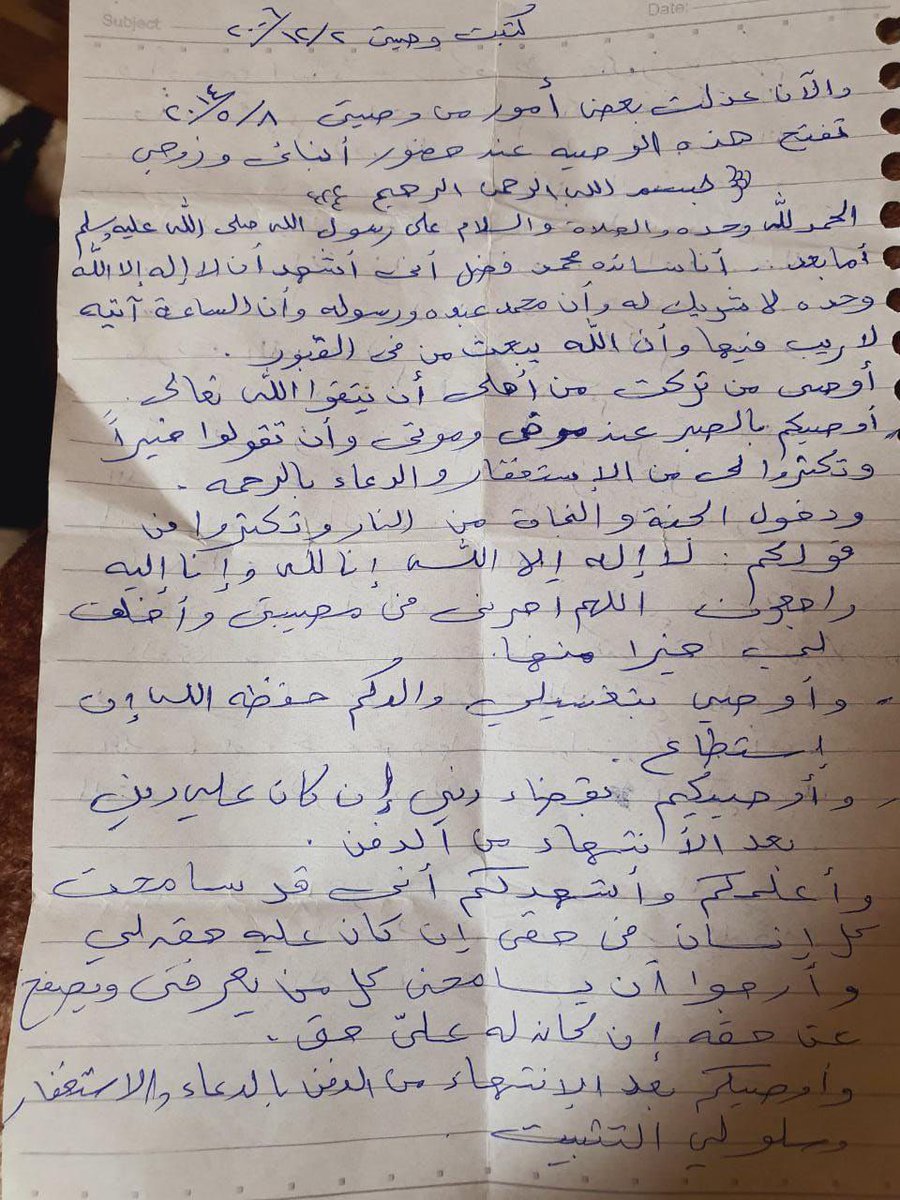 Subject
Date:
كتبت وصيتى ٢٠٠٦/١٢/٢
والآن عدلت بعض أمور من وصيتى ٢٠١٤/٥/٨
تفتح هذه الوصيه عند حضور أبنائى وزوجى
بسم الله الرحمن الرحيم
الحمد لله وحده والصلاة والسلام على رسول الله صلى الله عليه وسلم
أما بعد .. أنا محمد فضل أنى أشهد أن لا إله إلا الله
وحده لا شريك له وأن محمد عبده ورسوله وأن الساعة آتيه
لا ريب فيها وأن الله يبعث من فى القبور .
أوصى من تركت من أهلى أن يتقوا الله تعالى .
أوصيكم بالصبر عند موتى وأن تقولوا خيراً
وتكثروا لى من الاستغفار والدعاء بالرحمه .
ودخول الجنة والنجاة من النار وتكثروا من
قولكم : لا إله إلا الله إنا لله وإنا إليه
راجعون اللهم أجرنى فى مصيبتى وأخلف
لى خيرا منها .
- وأوصي بتغسيلي والدكم حفظه الله إن
إستطاع .
- وأوصيكم بقضاء ديني إن كان علي دين
بعد الأنتهاء من الدفن .
وأعلمكم وأشهدكم أنى قد سامحت
كل إنسان فى حقى إن كان عليه حق لي
وأرجوا أن يسامحنى كل من يعرفنى ويصفح
عن حقه إن كان له علىّ حق .
وأوصيكم بعد الإنتهاء من الدفن بالدعاء والاستغفار
وسلو لي التثبيت .